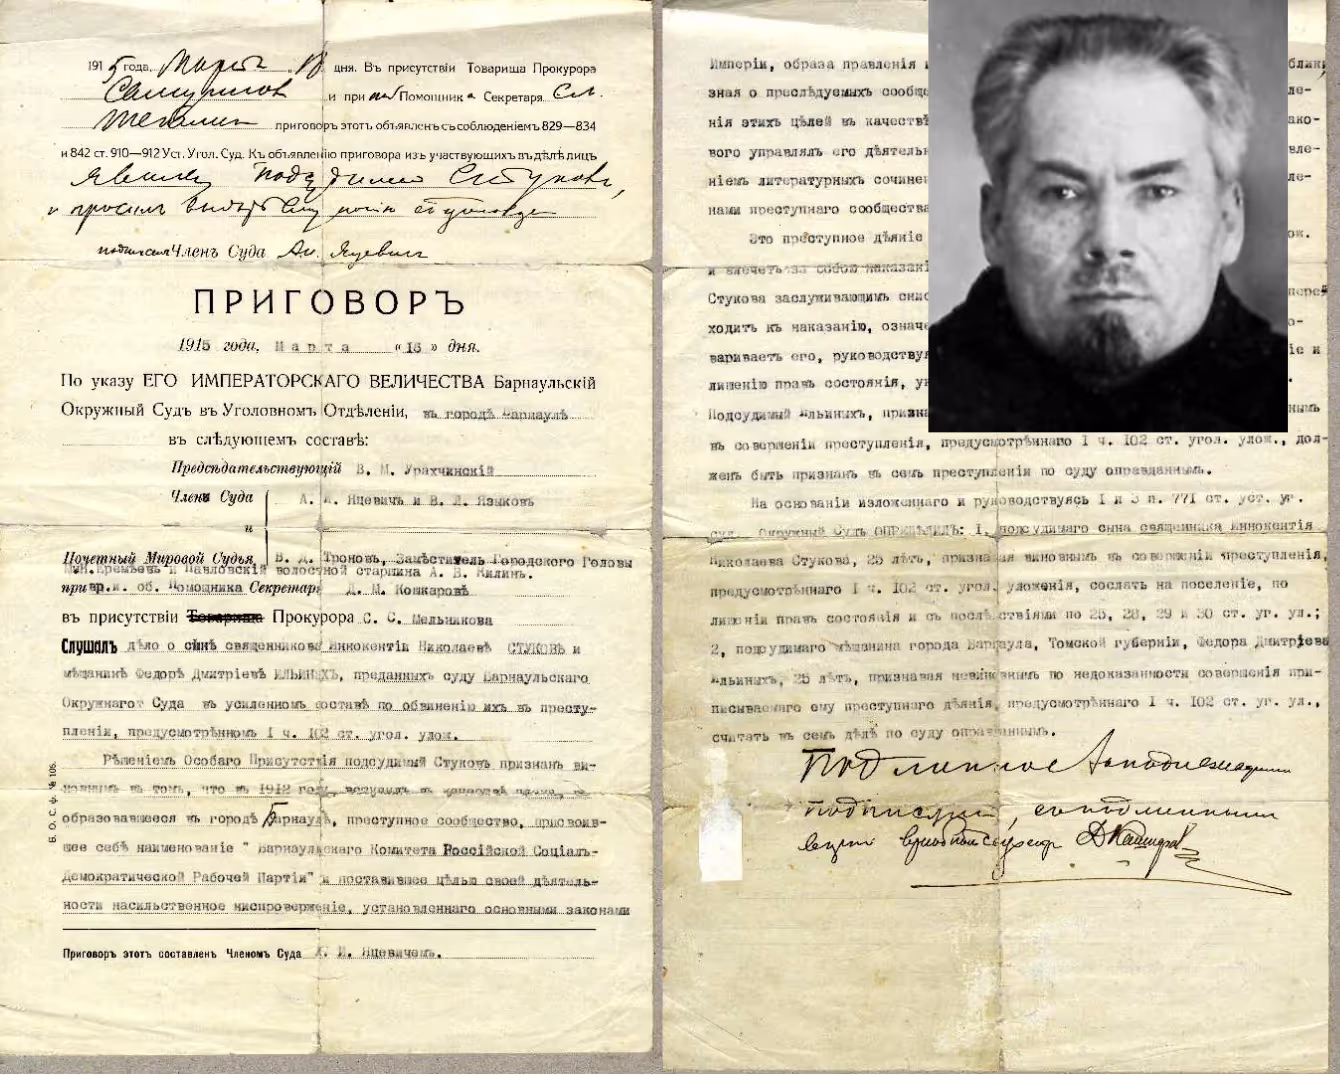 1915 года, Марта 18 дня. Въ присутствіи Товарища Прокурора
и при Помощник Секретаря
приговоръ этотъ объявленъ съ соблюденіемъ 829—834
и 842 ст. 910—912 Уст. Угол. Суд. Къ объявленію приговора изъ участвующихъ въ дѣлѣ лицъ
Стуковъ,
и просилъ
подписалъ Членъ Суда Ал. Яцевичъ
ПРИГОВОРЪ
1915 года, Марта "16" дня.
По указу ЕГО ИМПЕРАТОРСКАГО ВЕЛИЧЕСТВА Барнаульскій
Окружный Судъ въ Уголовномъ Отдѣленіи, въ городѣ Барнаулѣ
въ слѣдующемъ составѣ:
Предсѣдательствующій В. М. Урахчинскій
Члены Суда А. И. Яцевичъ и В. Л. Языковъ
и
Почетный Мировой Судья, В. Д. Троновъ, Замѣститель Городского Головы
и Павловскій волостной старшина А. В. Килинъ.
при вр.и. об. Помощника Секретаря Д. М. Кошкаровѣ
въ присутствіи Товарища Прокурора С. С. Мельникова
Слушалъ дѣло о сынѣ священниковѣ Иннокентіи Николаевѣ СТУКОВѢ и
мѣщанинѣ Федорѣ Дмитріевѣ ИЛЬИНЫХЪ, преданныхъ суду Барнаульскаго
Окружнагот Суда въ усиленномъ составѣ по обвиненію ихъ въ престу-
пленіи, предусмотрѣнномъ I ч. 102 ст. угол. улож.
Рѣшеніемъ Особаго Присутствія подсудимый Стуковъ признанъ ви-
новнымъ въ томъ, что въ 1912 году, вступилъ въ качествѣ члена, въ
образовавшееся въ городѣ Барнаулѣ, преступное сообщество, присвоив-
шее себѣ наименованіе "Барнаульскаго Комитета Россійской Соціалъ-
Демократической Рабочей Партіи" и поставившее цѣлью своей дѣятель-
ности насильственное ниспроверженіе, установленнаго основными законами
Приговоръ этотъ составленъ Членомъ Суда А. И. Яцевичемъ.
Б. О. С. Ф. № 105.
Имперіи, образа правленія
зная о преслѣдуемыхъ сообще
нія этихъ цѣлей въ качествѣ
вого управлялъ его дѣятель
ніемъ литературныхъ сочине
нами преступнаго сообщества
Это преступное дѣяніе
и влечетъ за собою наказані
Стукова заслуживающимъ снис
ходить къ наказанію, означе
вариваетъ его, руководствуя
лишенію правъ состоянія, ук
Подсудимый Ильиныхъ, призна нымъ
въ совершеніи преступленія, предусмотрѣннаго I ч. 102 ст. угол. улож., дол-
женъ быть признанъ въ семъ преступленіи по суду оправданнымъ.
На основаніи изложеннаго и руководствуясь I и 3 п. 771 ст. уст. уг.
суд. Окружный Судъ ОПРЕДѢЛИЛЪ: I, подсудимаго сына священника Иннокентія
Николаева Стукова, 25 лѣтъ, признавая виновнымъ въ совершеніи преступленія,
предусмотрѣннаго I ч. 102 ст. угол. уложенія, сослать на поселеніе, по
лишеніи правъ состоянія и съ послѣдствіями по 25, 28, 29 и 30 ст. уг. ул.;
2, подсудимаго мѣщанина города Барнаула, Томской губерніи, Федора Дмитріева
Ильиныхъ, 25 лѣтъ, признавая невиновнымъ по недоказанности совершенія при-
писываемаго ему преступнаго дѣянія, предусмотрѣннаго I ч. 102 ст. уг. ул.,
считать въ семъ дѣлѣ по суду оправданнымъ.
Подлинное за надлежащими
подписями, съ подлиннымъ